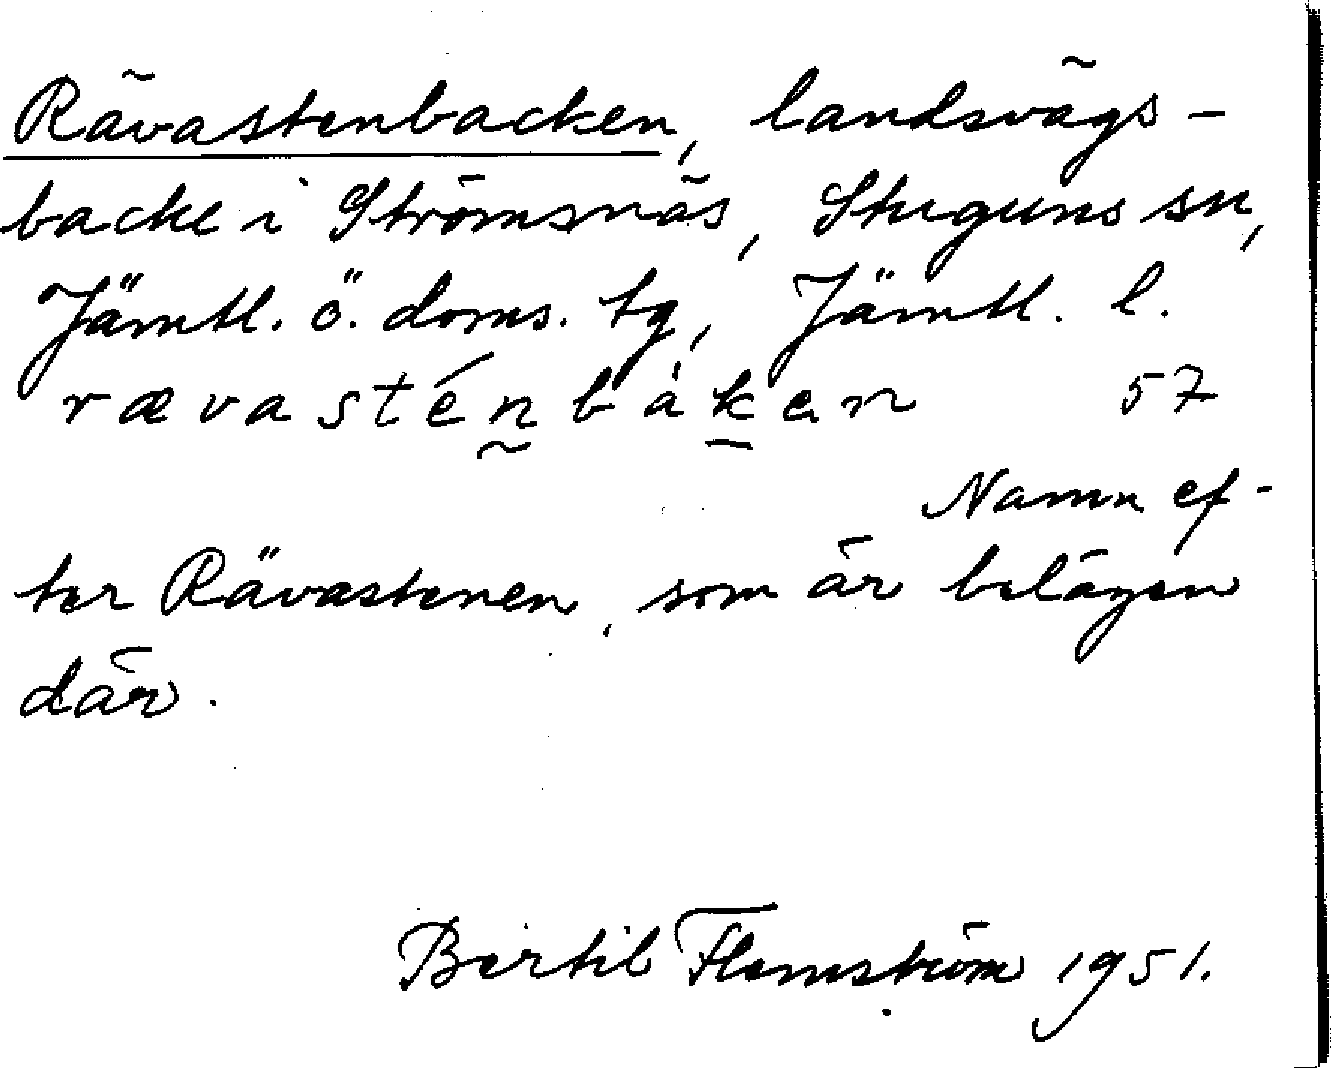 Rävastenbacken, landsvägs-
backe i Strömsnäs, Stuguns sn,
Jämtl. ö. doms. tg, Jämtl. l.
rævasténbàken 57
Namn ef-
ter Rävastenen, som är belägen
där.
Bertil Flemström 1951.